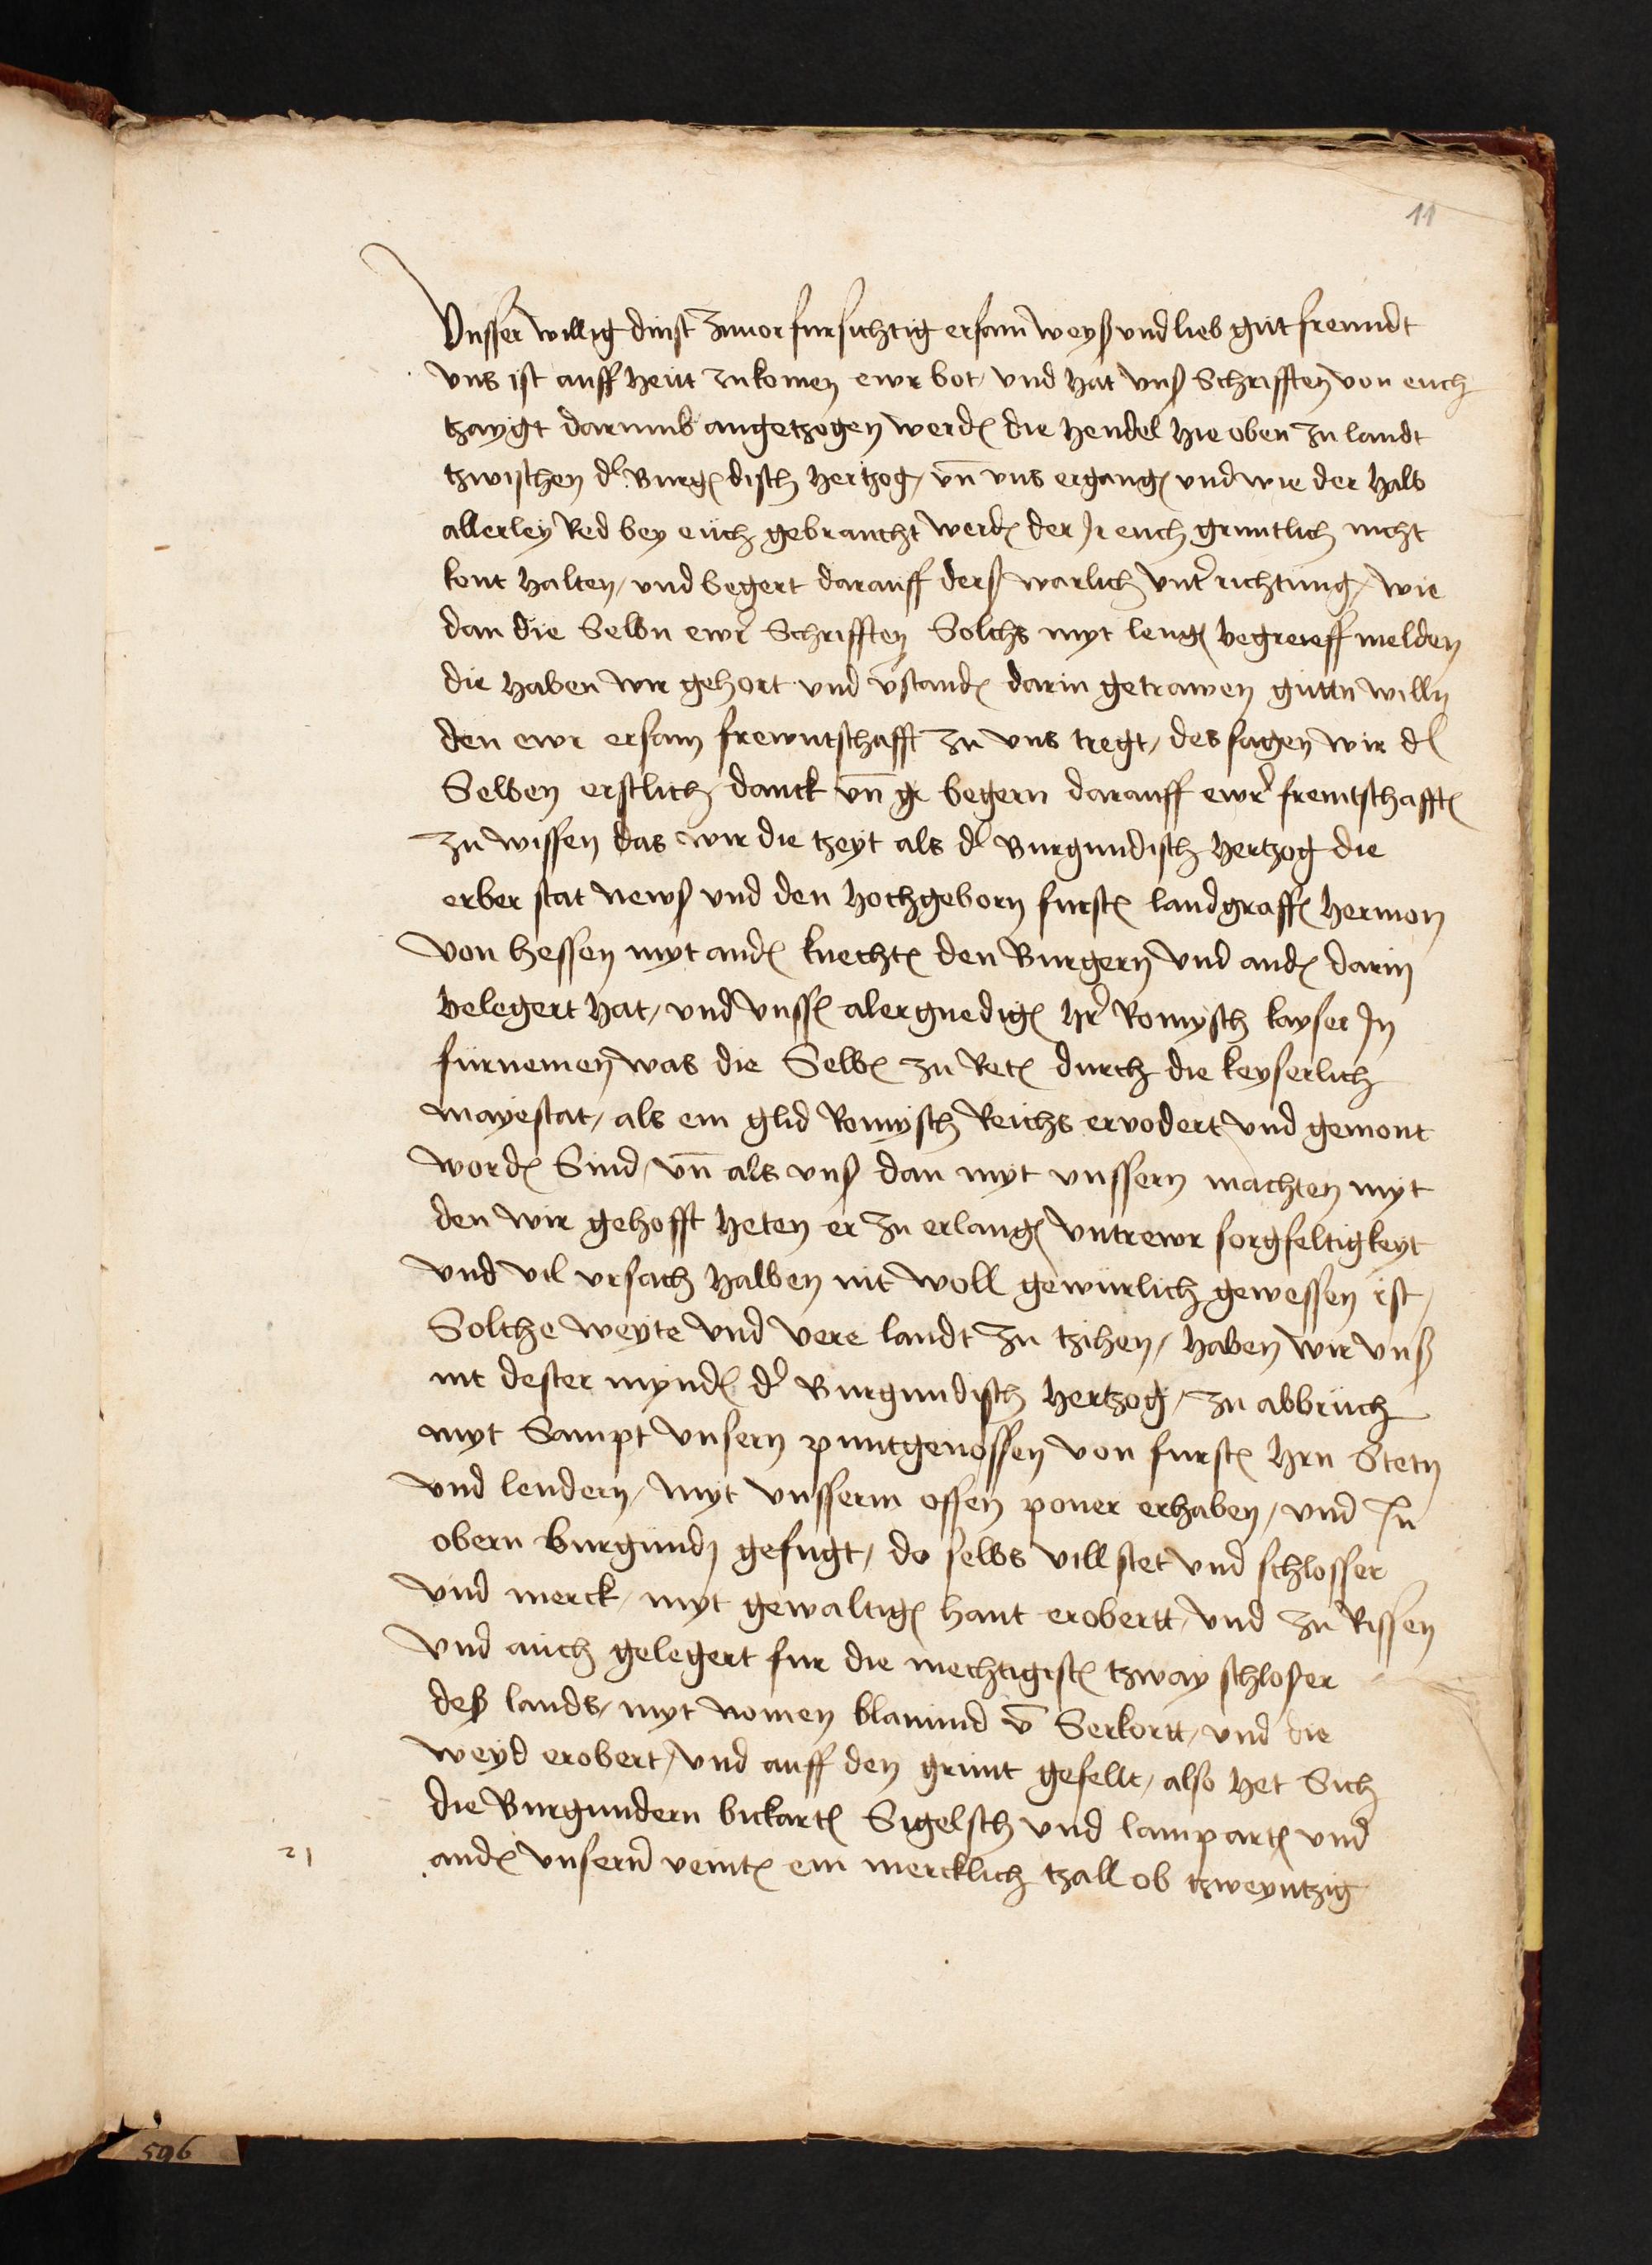 11
Vnsser willig dinst zuuor fursichtig ersam weyß vnd lieb gut freundt
vns ist auff heut zukomen ewr bot / vnd hat vnß Schrifften von euch
tzaygt darumb angetzogen werdn die hendel hie oben zu landt
tzwischen dr Burgndisch hertzog / vn̄ vns ergangn vnd wie der halb
allerley Red bey euch gebraucht werdn der Jr euch gruntlich nicht
kont halten / vnd begert darauff derß warlich vnterrichtung / wie
dan die Selbn ewr Schrifften Solchs myt lengn begreieff melden
die haben wir gehort vnd v̄standn darin getrawen guttn willn
den ewr ersam frewntschafft zu vns tregt / des sagen wir dr
Selben erstlich danck vn̄ begern darauff ewr freuntschafftn
zu wissen das wir die tzeyt als dr Burgundisch hertzog die
erber stat newß vnd den hochgeborn furstn landgraffn hermon
von hessen myt andn knechtn den Burgern vnd andn darin
belegert hat / vnd vnssn alergnedign hr Romysch kayser Jn
furnemen was die Selbn zu Retn durch die keyserlich
mayestat / als ein glid Romysch Reichs ervodert vnd gemont
wordn Sind / vn̄ als vnß dan myt vnssern machten myt
den wir gehofft heten er zu erlangn vntrewr sorgfeltigkeyt
vnd vil vrsach halben nit woll gewurlich gewessen ist /
Solche weyte vnd vere landt zu tzihen / haben wir vnß
nit dester myndn dr Burgundisch hertzog / zu abbruch
myt Sampt vnsern puntgenossen von furstn hrn Stetn
vnd lendern / myt vnsserm offen poner erhaben / vnd Jn
obern burgundn gefugt / do selbs vill stet vnd schlosser
vnd merck / myt gewaltign hant erobertt / vnd zu Rissen
vnd auch gelegert fur die mechtigistn tzway schloßer
deß lands / myt nomen blamund v̄ Serkortt / vnd die
weyd erobert / vnd auff den grunt gefellt / also het Sich
die Burgundern bickartn Sigelsch vnd lampartn vnd
andn vnsern veintn ein mercklich tzall ob tzweyntzig
596